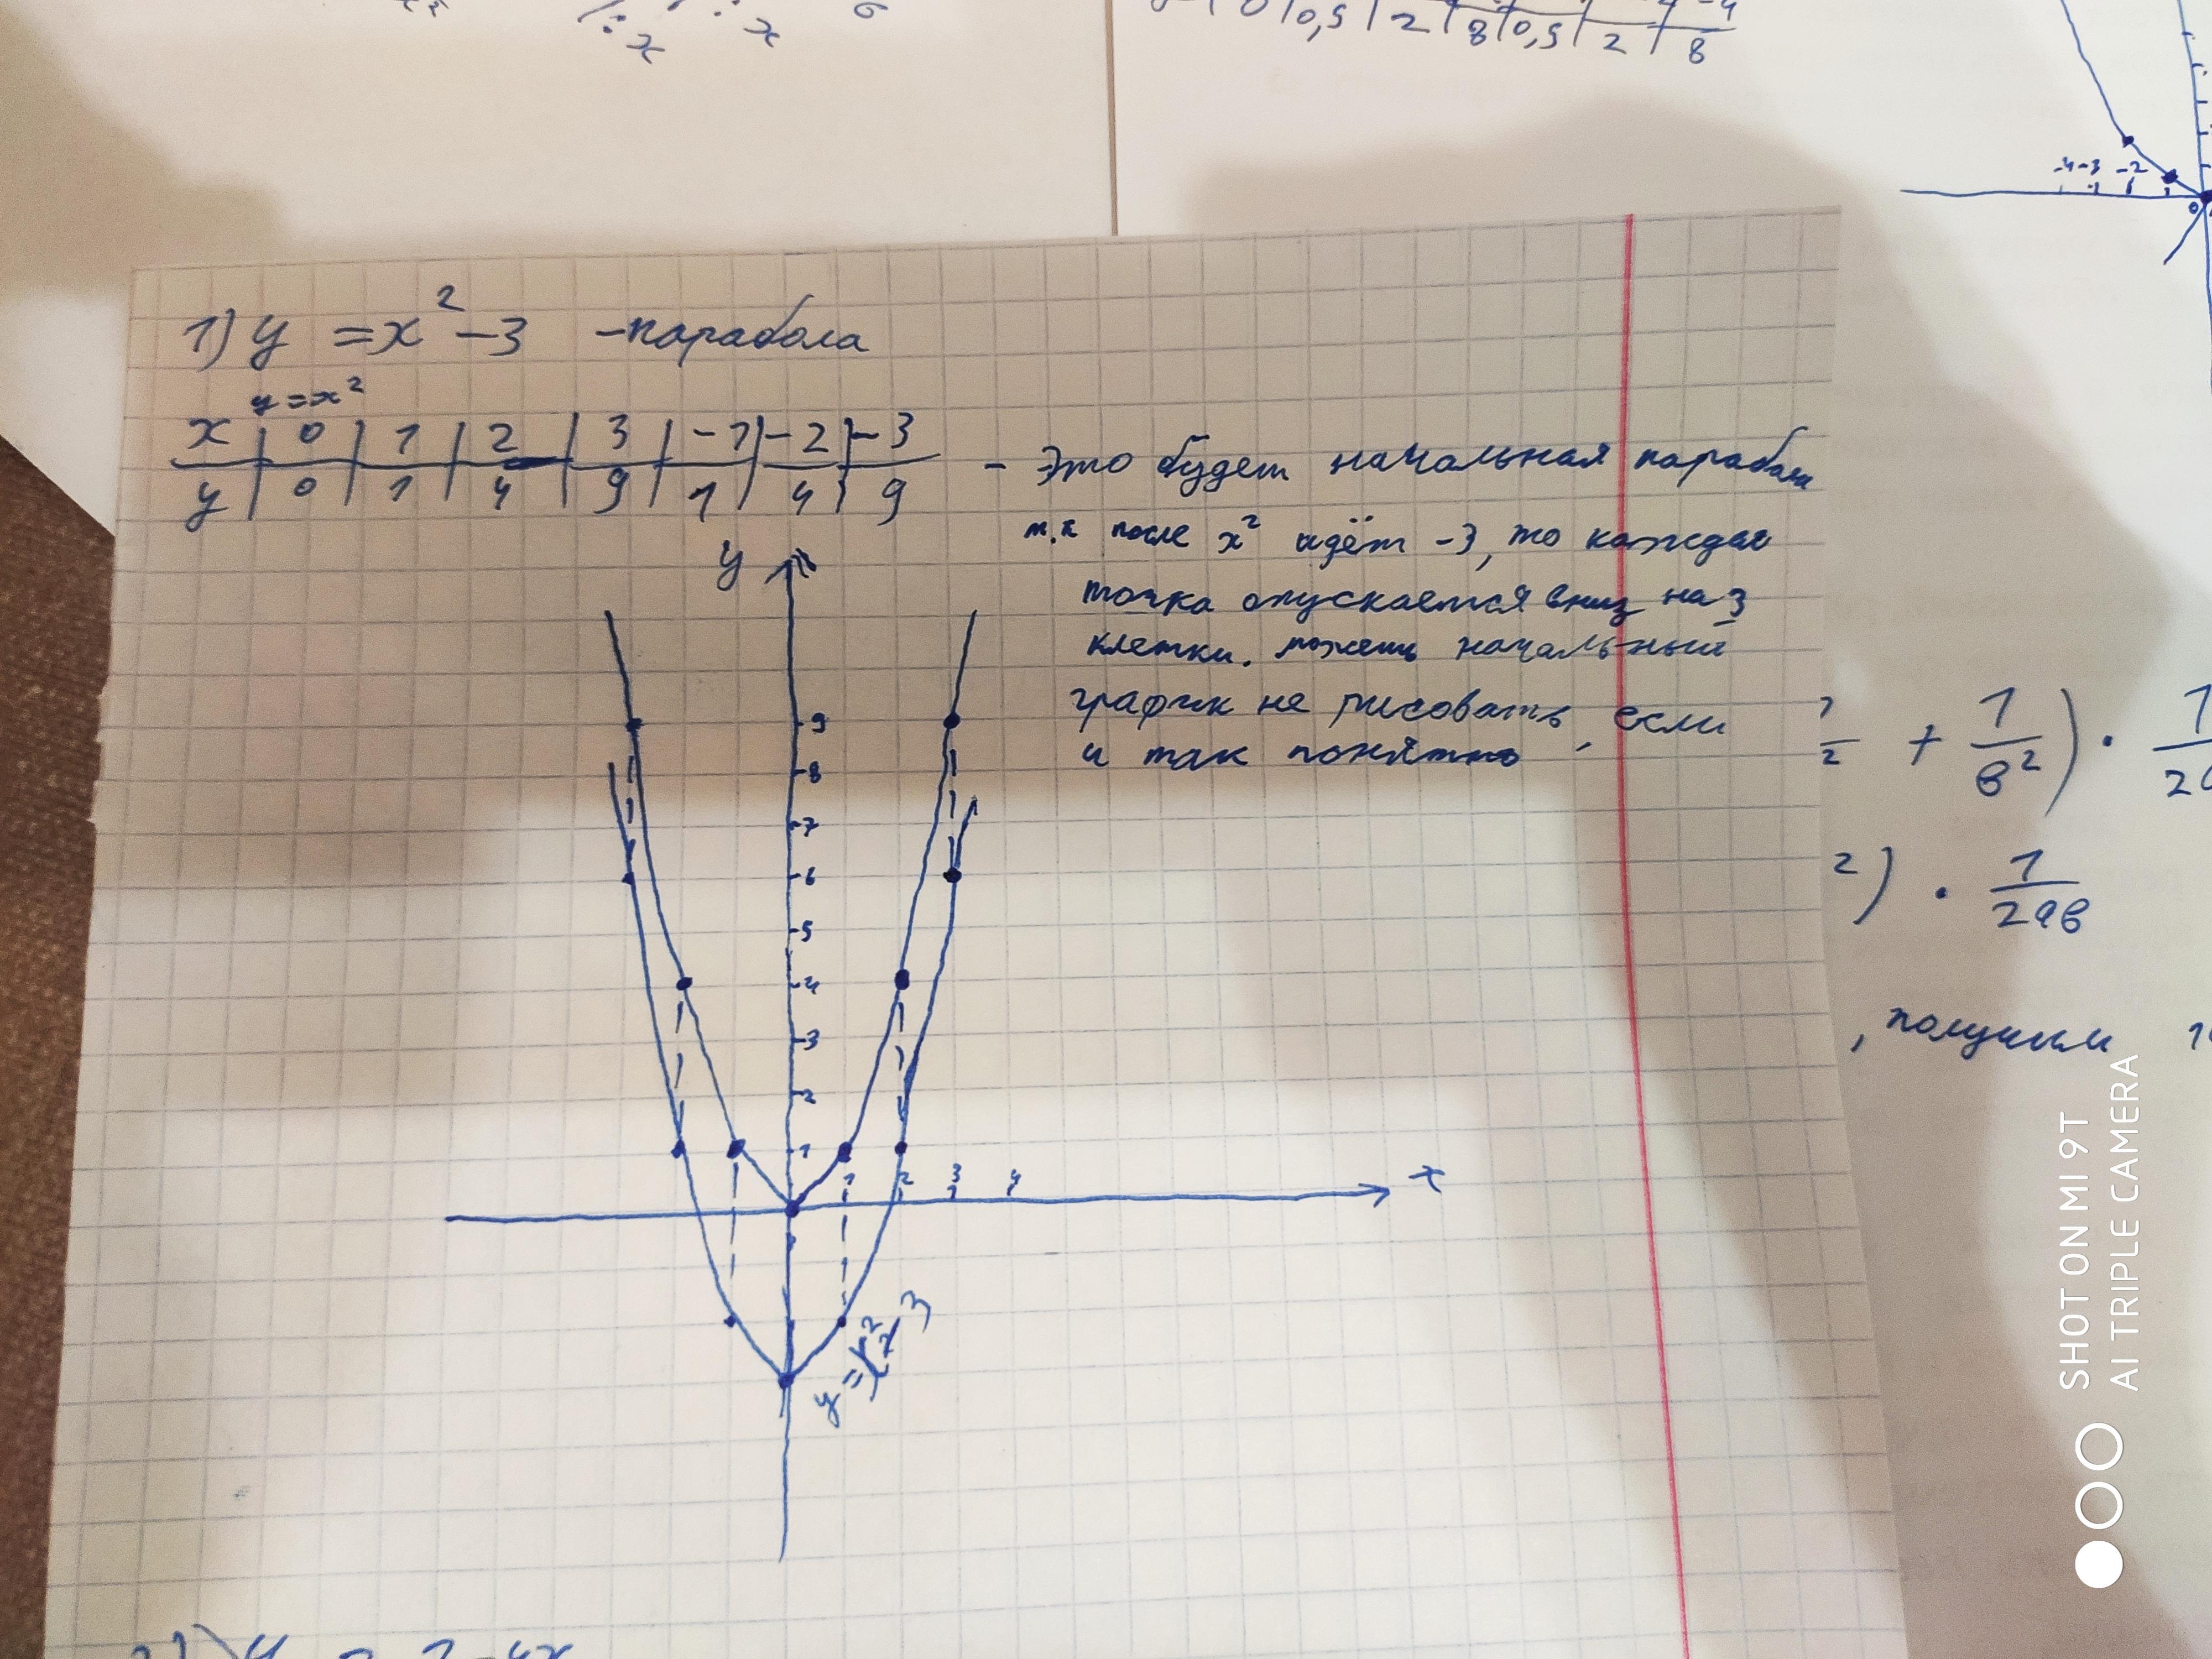 0 0,5 2 8 0,5 2 8
: x : x 6
-4 -3 -2
0
1) y = x² - 3 - парабола
y = x²
x 0 1 2 3 -1 -2 -3
y 0 1 4 9 1 4 9
- Это будет начальная парабола
т.к после x² идёт -3, то каждая
точка опускается вниз на 3
клетки. можешь начальный
график не рисовать, если
и так понятно
y
9
8
7
6
5
4
3
2
1
1 2 3 4
x
y = x² - 3
+ 1/в²) ·
2) · 1/2ав
, получим
SHOT ON MI 9T
AI TRIPLE CAMERA